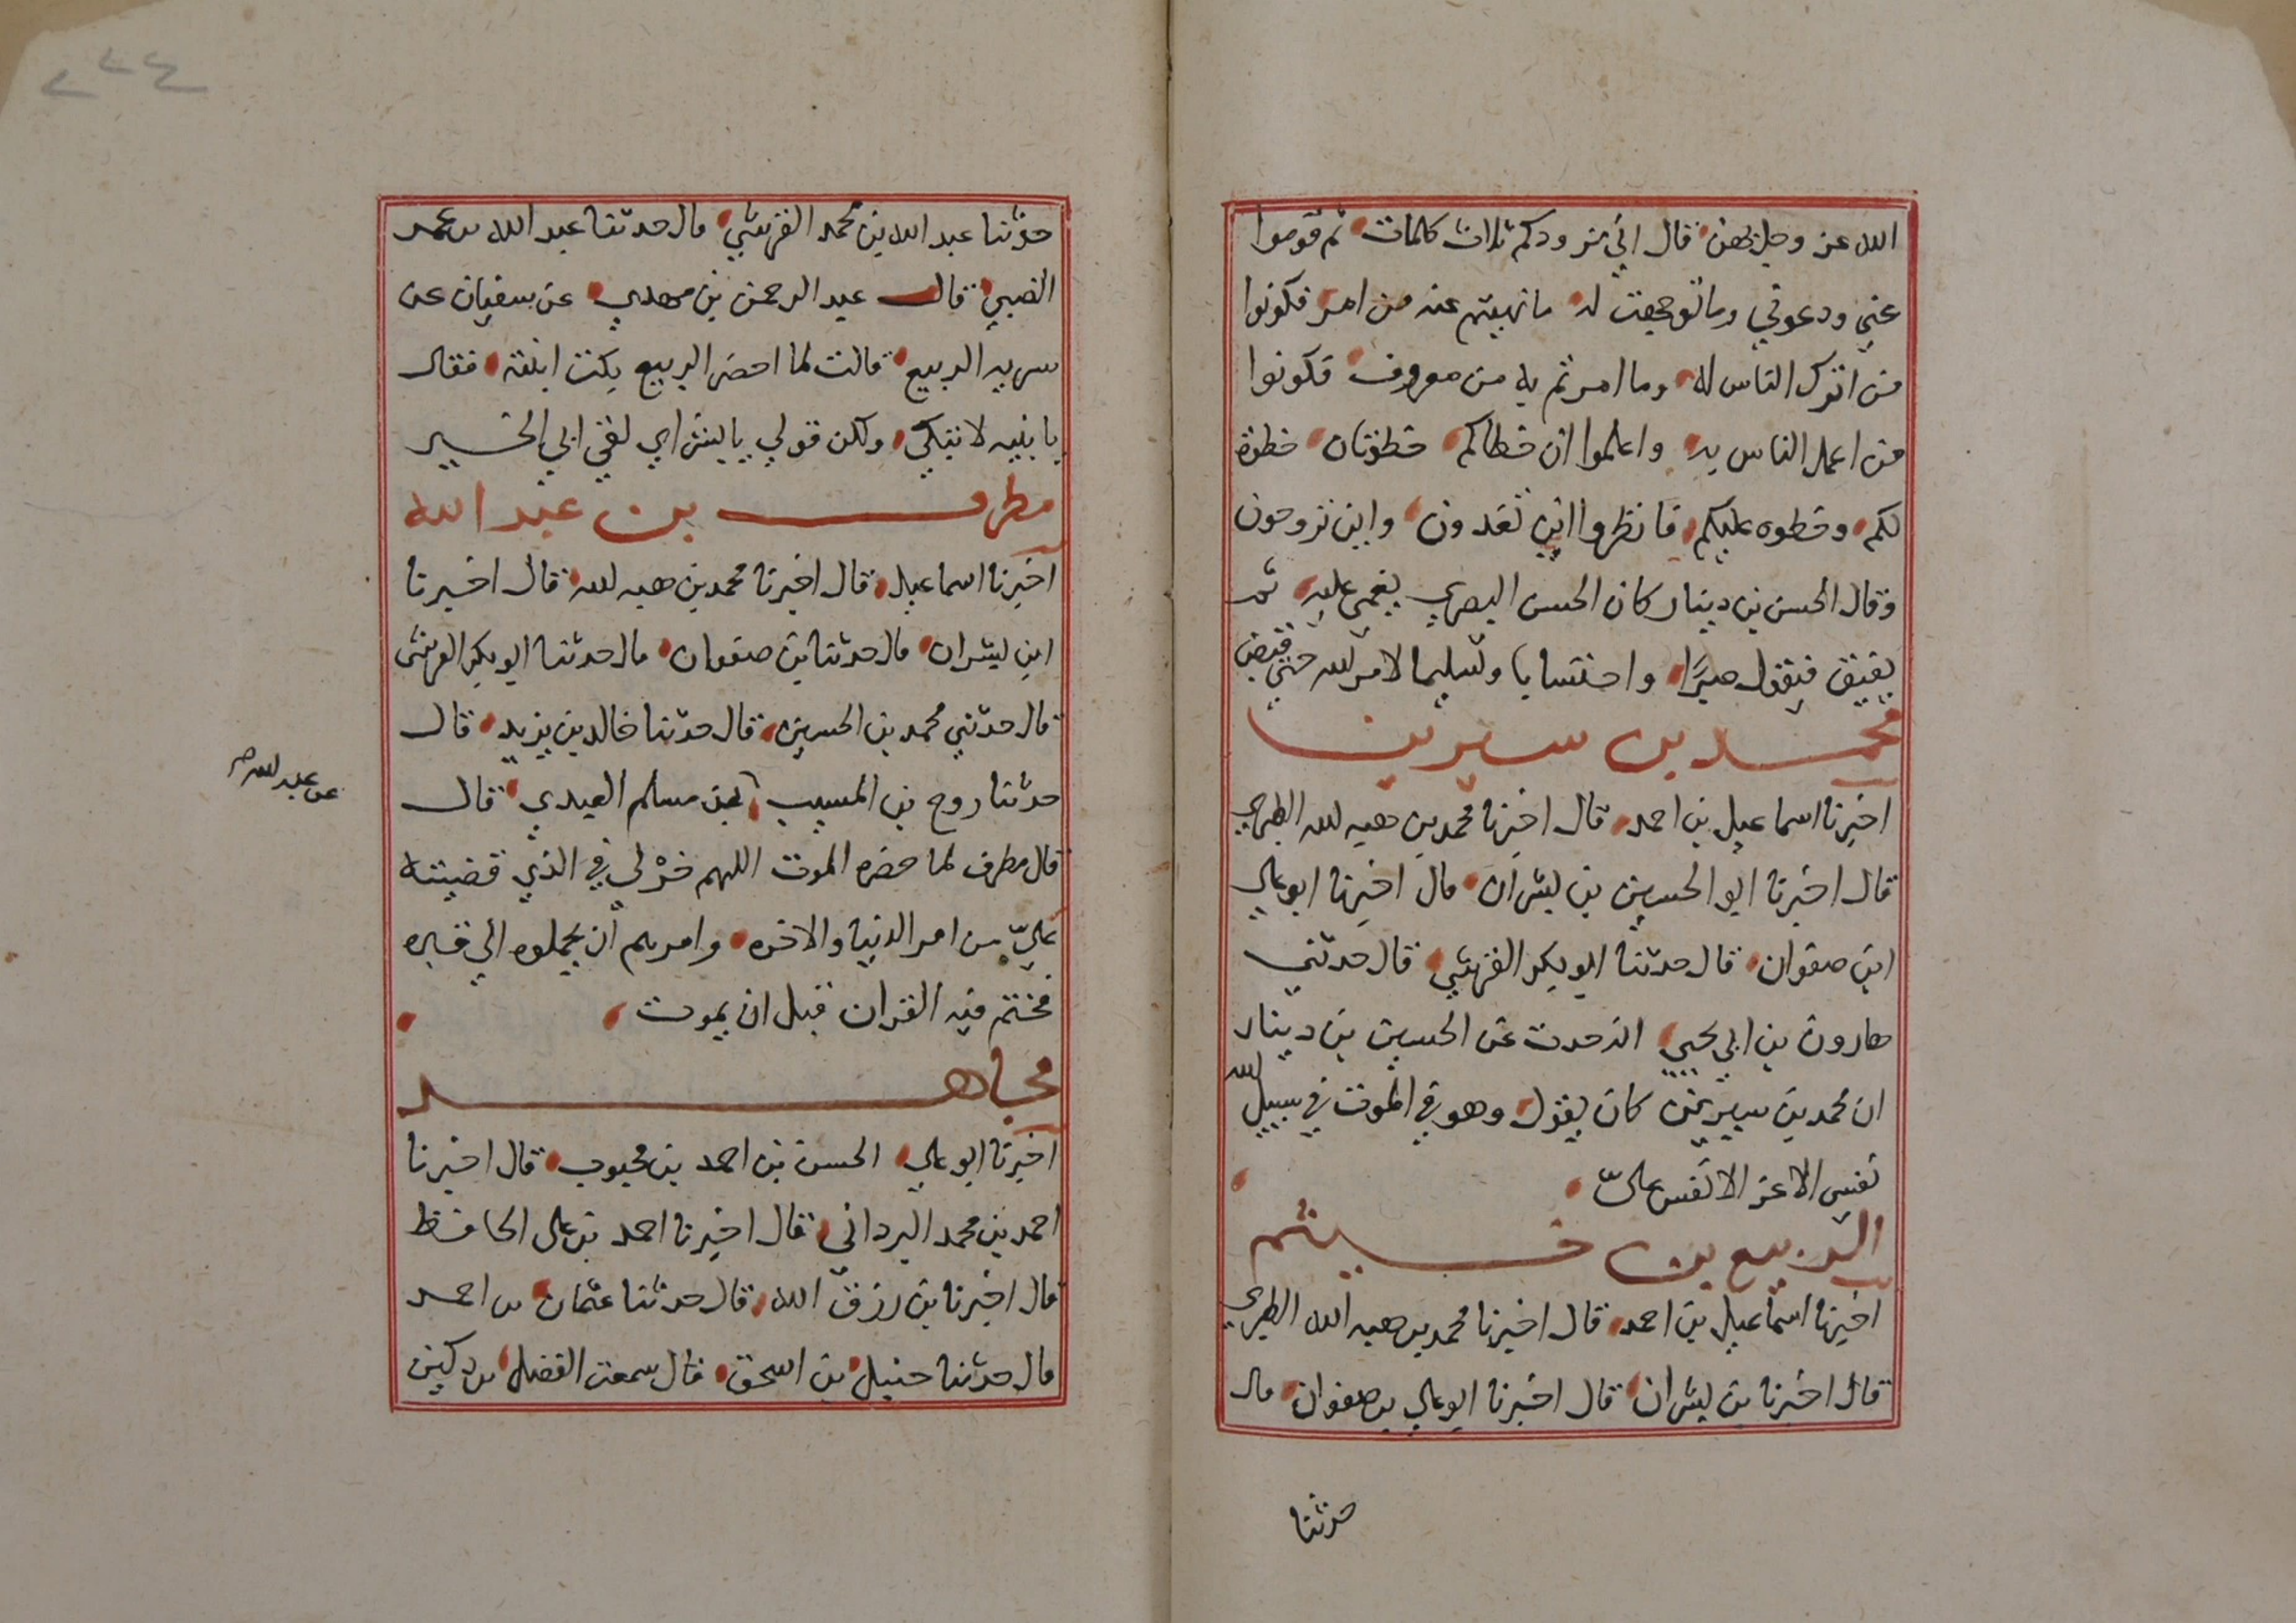 الله عز وجل بهن قال اني مزودكم ثلاث كلمات ثم قوموا
عني ودعوني وما توجهت له ما نهيتم عنه من امر فكونوا
من اترك الناس له وما امرتم به من معروف فكونوا
من اعمل الناس به واعلموا ان خطاكم خطوتان خطوة
لكم وخطوه عليكم فانظروا اين تغدون واين تروحون
وقال الحسن بن دينار كان الحسن البصري يغمى عليه ثم
يفيق فيقول صبرًا واحتسابا وتسليما لامر الله حتى قبض
محمد بن سيرين
اخبرنا اسماعيل بن احمد قال اخبرنا محمد بن هبه الله الطبري
قال اخبرنا ابو الحسين بن بشران قال اخبرنا ابو علي
ابن صفوان قال حدثنا ابو بكر القرشي قال حدثني
هارون بن ابي يحيى انه حدث عن الحسين بن دينار
ان محمد بن سيرين كان يقول وهو في الموت في سبيل الله
نفسي الاعز الانفس عليّ
الربيع بن خيثم
اخبرنا اسماعيل بن احمد قال اخبرنا محمد بن هبه الله الطبري
قال اخبرنا بن بشران قال اخبرنا ابو علي بن صفوان قال
حدثنا
٢٣٤
حدثنا عبد الله بن محمد القرشي قال حدثنا عبد الله بن محمد
الضبي قال عبد الرحمن بن مهدي عن سفيان عن
سريه الربيع قالت لما احضر الربيع بكت ابنته فقال
يا بنيه لا تبكي ولكن قولي يا بشراي لقي ابي الخير
مطرف بن عبد الله
اخبرنا اسماعيل قال اخبرنا محمد بن هبه الله قال اخبرنا
ابن بشران قال حدثنا بن صفوان قال حدثنا ابو بكر القرشي
قال حدثني محمد بن الحسين قال حدثنا خالد بن يزيد قال
حدثنا روح بن المسيب بن مسلم العبدي قال
عن عبد الله صح
قال مطرف لما حضره الموت اللهم خر لي في الذي قضيته
عليّ من امر الدنيا والاخره وامرهم أن يحملوه الي قبره
فختم فيه القران قبل ان يموت
مجاهد
اخبرنا ابو علي الحسن بن احمد بن محبوب قال اخبرنا
احمد بن محمد البرداني قال اخبرنا احمد بن علي الحافظ
قال اخبرنا بن رزق الله قال حدثنا عثمان بن احمد
قال حدثنا حنبل بن اسحق قال سمعت الفضل بن دكين